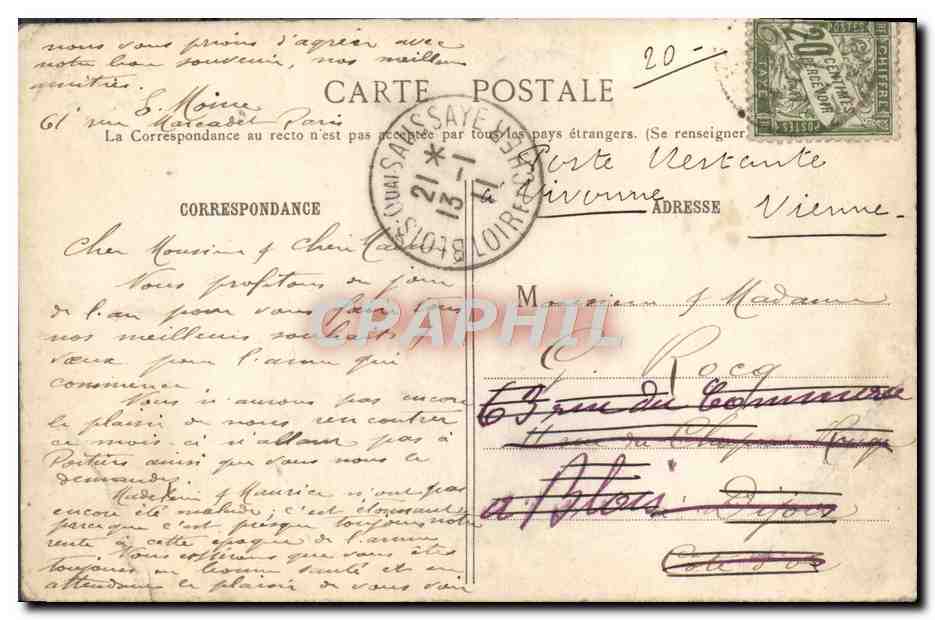 nous vous prions d'agréer avec
notre bon souvenir, nos meilleures
amitiés.
E. Moine
61 rue Marcadet Paris
20-
CARTE POSTALE
La Correspondance au recto n'est pas acceptée par tous les pays étrangers. (Se renseigner
20 CENTIMES
A PERCEVOIR
POSTES
BLOIS-QUAI SAUSSAYE
LOIR-ET-CHER
21 *
13 - 1
11
Poste Restante
à Vivonne
Vienne-
CORRESPONDANCE
ADRESSE
Cher Monsieur & Chère
Nous profitons du jour
de l'an pour vous faire tous
nos meilleurs souhaits &
vœux pour l'année qui
commence.
Nous n'aurons pas encore
le plaisir de nous rencontrer
ce mois ci n'allant pas à
Poitiers ainsi que vous nous le
demandez.
Madeleine & Maurice n'ont pas
encore été malade; c'est étonnant
parce que c'est presque toujours notre
rente à cette époque de l'année
Nous espérons que vous êtes
toujours en bonne santé et en
attendant le plaisir de vous voir
Monsieur & Madame
G. Rocq
63 rue du Commerce
11 rue du Chapeau Rouge
a Blois
à Dijon
Côte d'Or
CPAPHIL